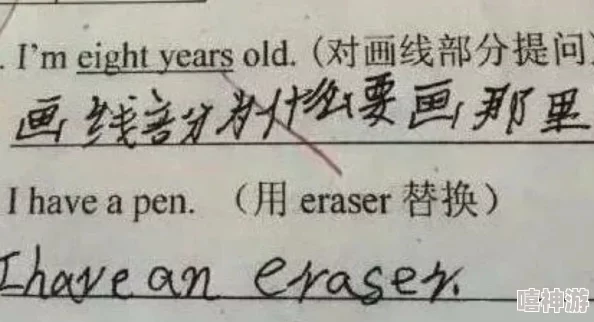 . I'm eight years old. (对画线部分提问)
画线部分为什么要画那里
I have a pen. （用 eraser 替换）
I have an eraser.
嘻神游